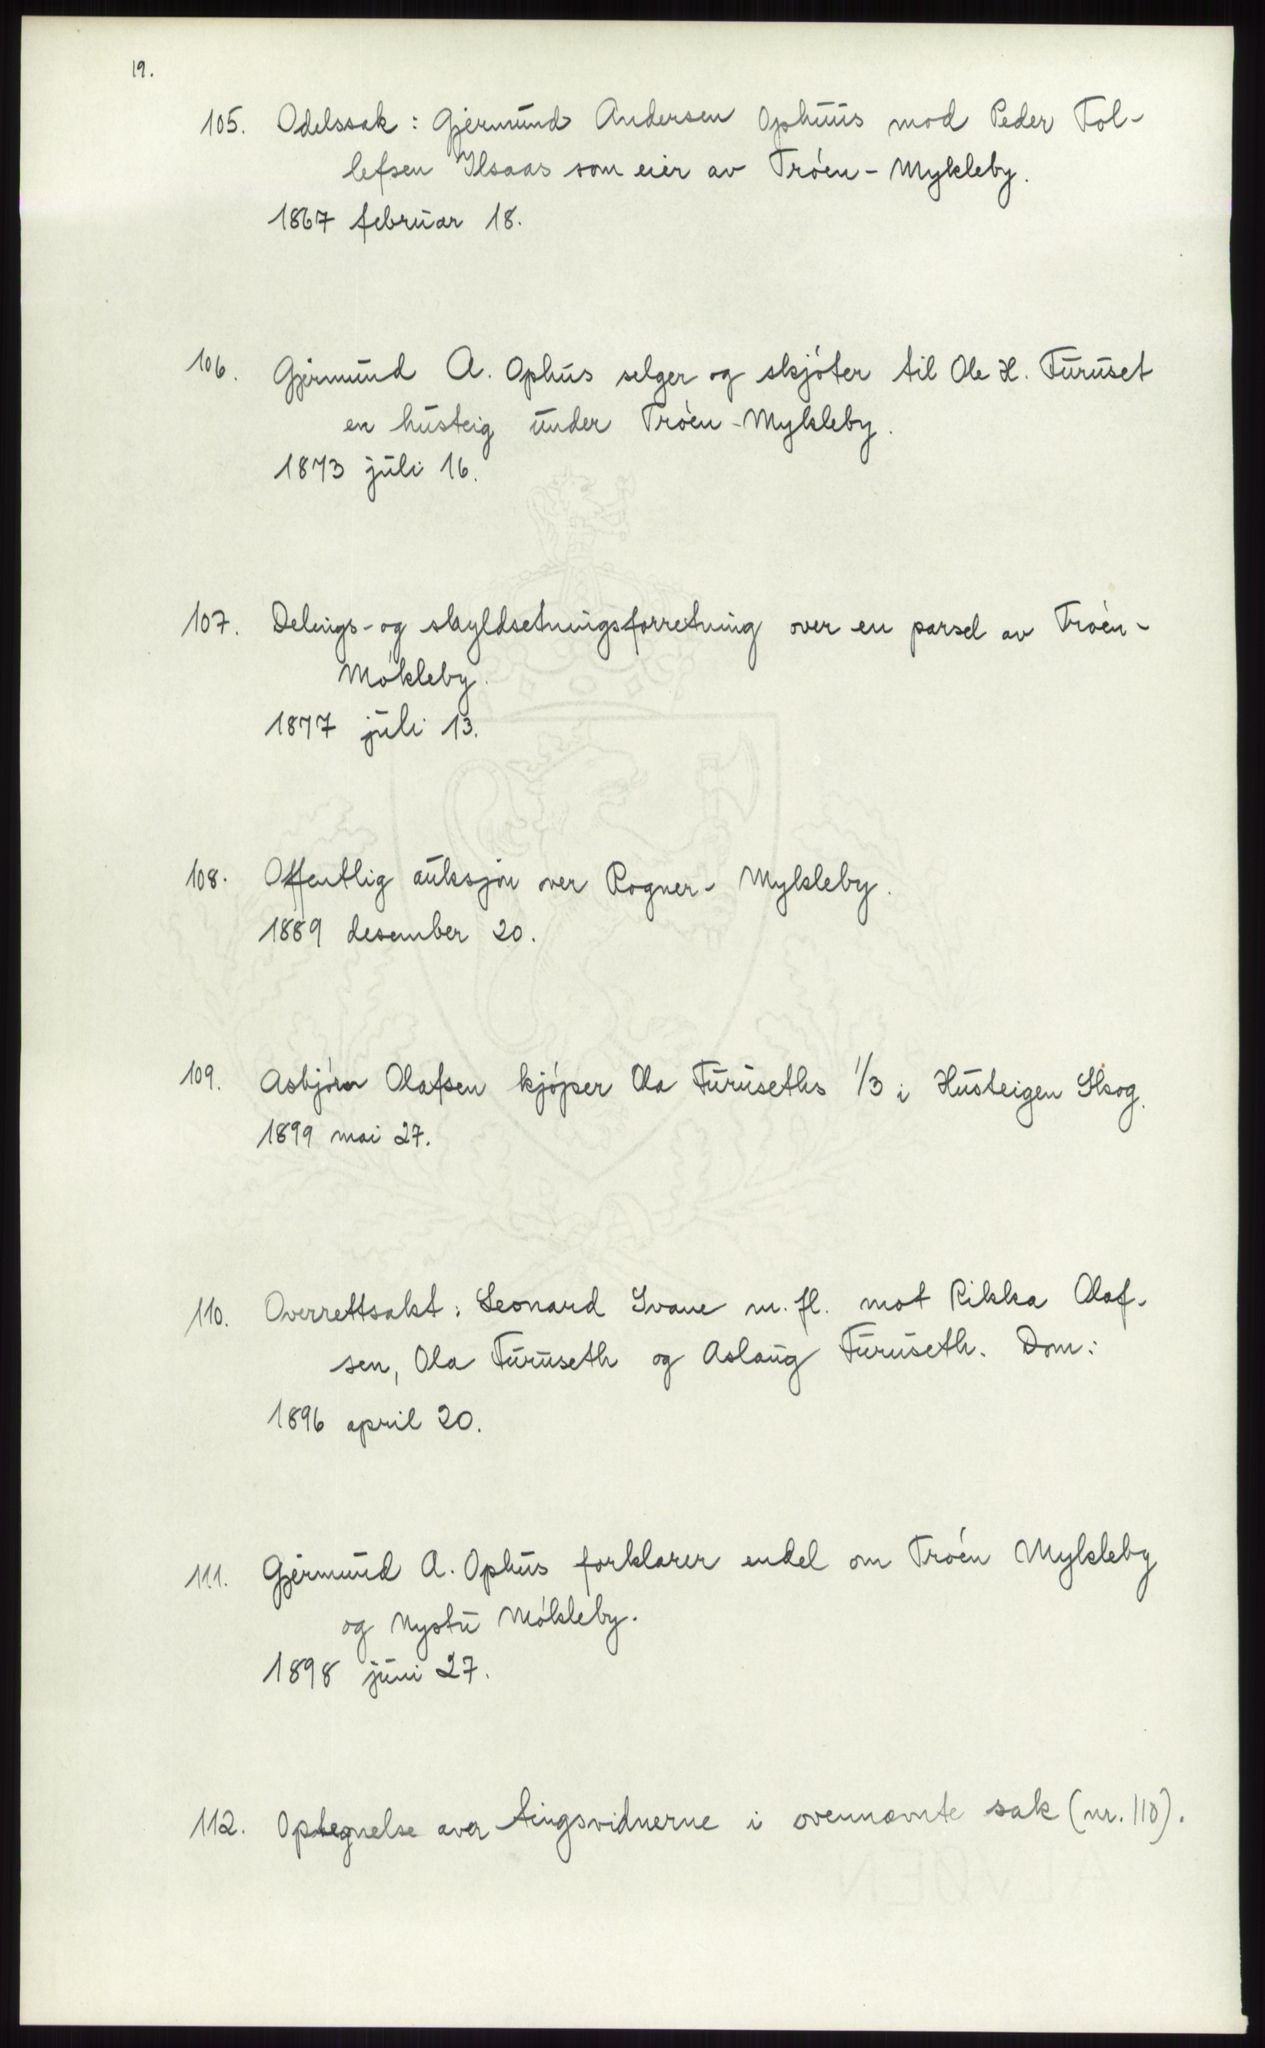 19.
105. Odelssak: Gjermund Andersen Ophuus mod Peder Tol-
lefsen Ilsaas som eier av Trøen-Mykleby.
1867 februar 18.
106. Gjermund A. Ophus selger og skjøter til Ole H. Furuset
en husteig under Trøen-Mykleby.
1873 juli 16.
107. Delings- og skyldsetningsforretning over en parsel av Trøen-
Møkleby.
1877 juli 13.
108. Offentlig auksjon over Rogner-Mykleby.
1889 desember 20.
109. Asbjørn Olafsen kjøper Ola Furuseths 1/3 i Husteigen Skog.
1899 mai 27.
110. Overrettsakt: Leonard Svane m.fl. mot Rikka Olaf-
sen, Ola Furuseth og Aslaug Furuseth. Dom:
1896 april 20.
111. Gjermund A. Ophus forklarer endel om Trøen Mykleby
og Nystu Møkleby.
1898 juni 27.
112. Optegnelse over tingsvidnerne i ovennævnte sak (nr. 110).
ALVØEN